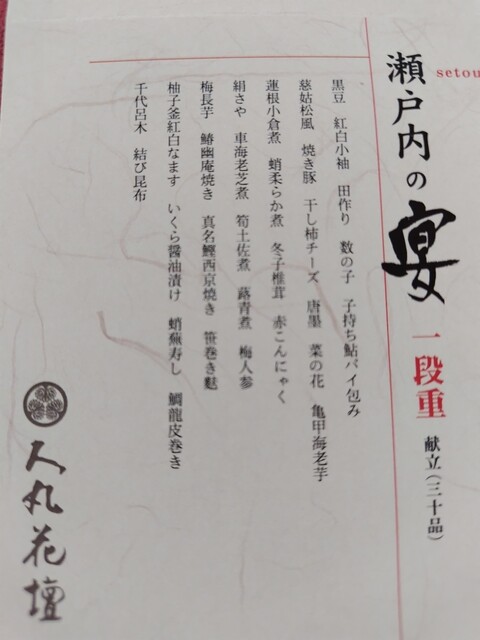 setou
瀬戸内の宴 一段重 献立(三十品)
黒豆 紅白小袖 田作り 数の子 子持ち鮎パイ包み
慈姑松風 焼き豚 干し柿チーズ 唐墨 菜の花 亀甲海老芋
蓮根小倉煮 蛸柔らか煮 冬子椎茸 赤こんにゃく
絹さや 車海老芝煮 筍土佐煮 蕗青煮 梅人参
梅長芋 鰆幽庵焼き 真名鰹西京焼き 笹巻き麩
柚子釜紅白なます いくら醤油漬け 蛸蕪寿し 鯛龍皮巻き
千代呂木 結び昆布
人丸花壇